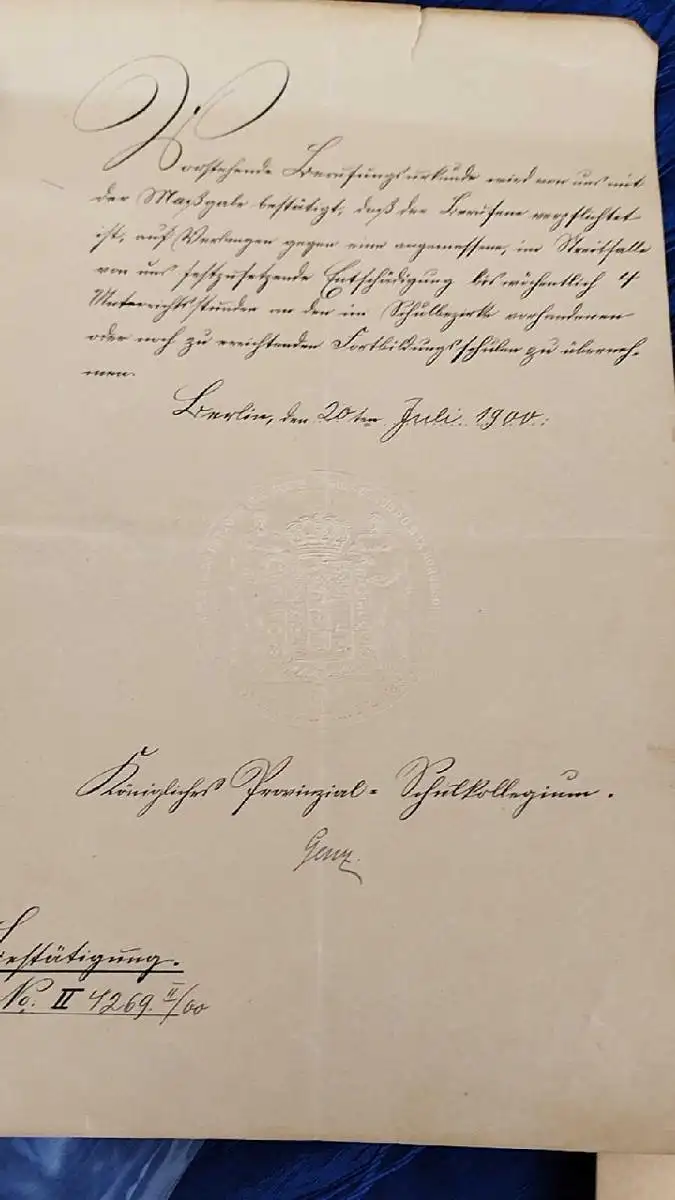 Vorstehende Berufungsurkunde wird von uns mit
der Maßgabe bestätigt, daß der Berufene verpflichtet
ist, auf Verlangen gegen eine angemessene, im Streitfalle
von uns festzusetzende Entschädigung bis wöchentlich 4
Unterrichtsstunden an den im Schulbezirke vorhandenen
oder noch zu errichtenden Fortbildungsschulen zu überneh-
men.
Berlin, den 20ten Juli 1900.
Königliches Provinzial-Schulkollegium.
Bestätigung.
No. II 4269. II/00